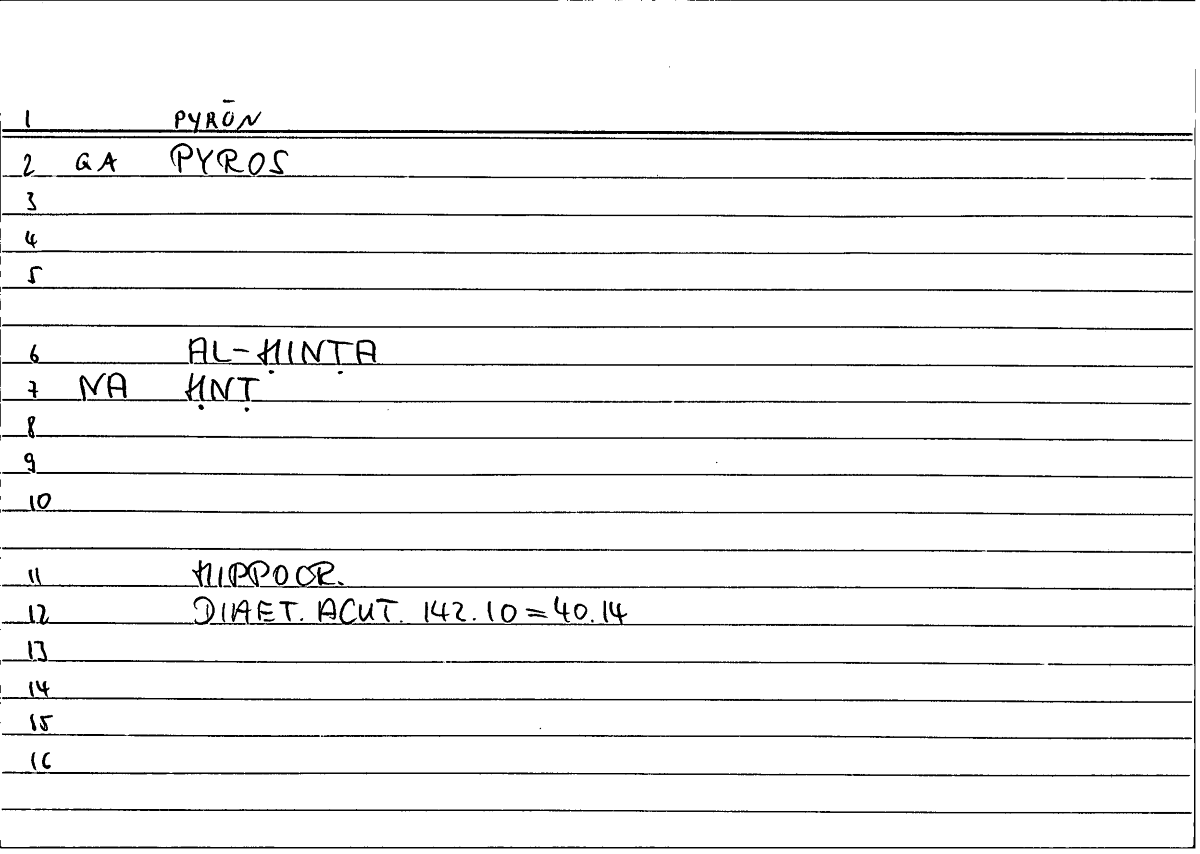 1 PYRŌN
2 GA PYROS
3
4
5
6 AL-ḤINṬA
7 NA ḤNṬ
8
9
10
11 HIPPOCR.
12 DIAET. ACUT. 142.10=40.14
13
14
15
16